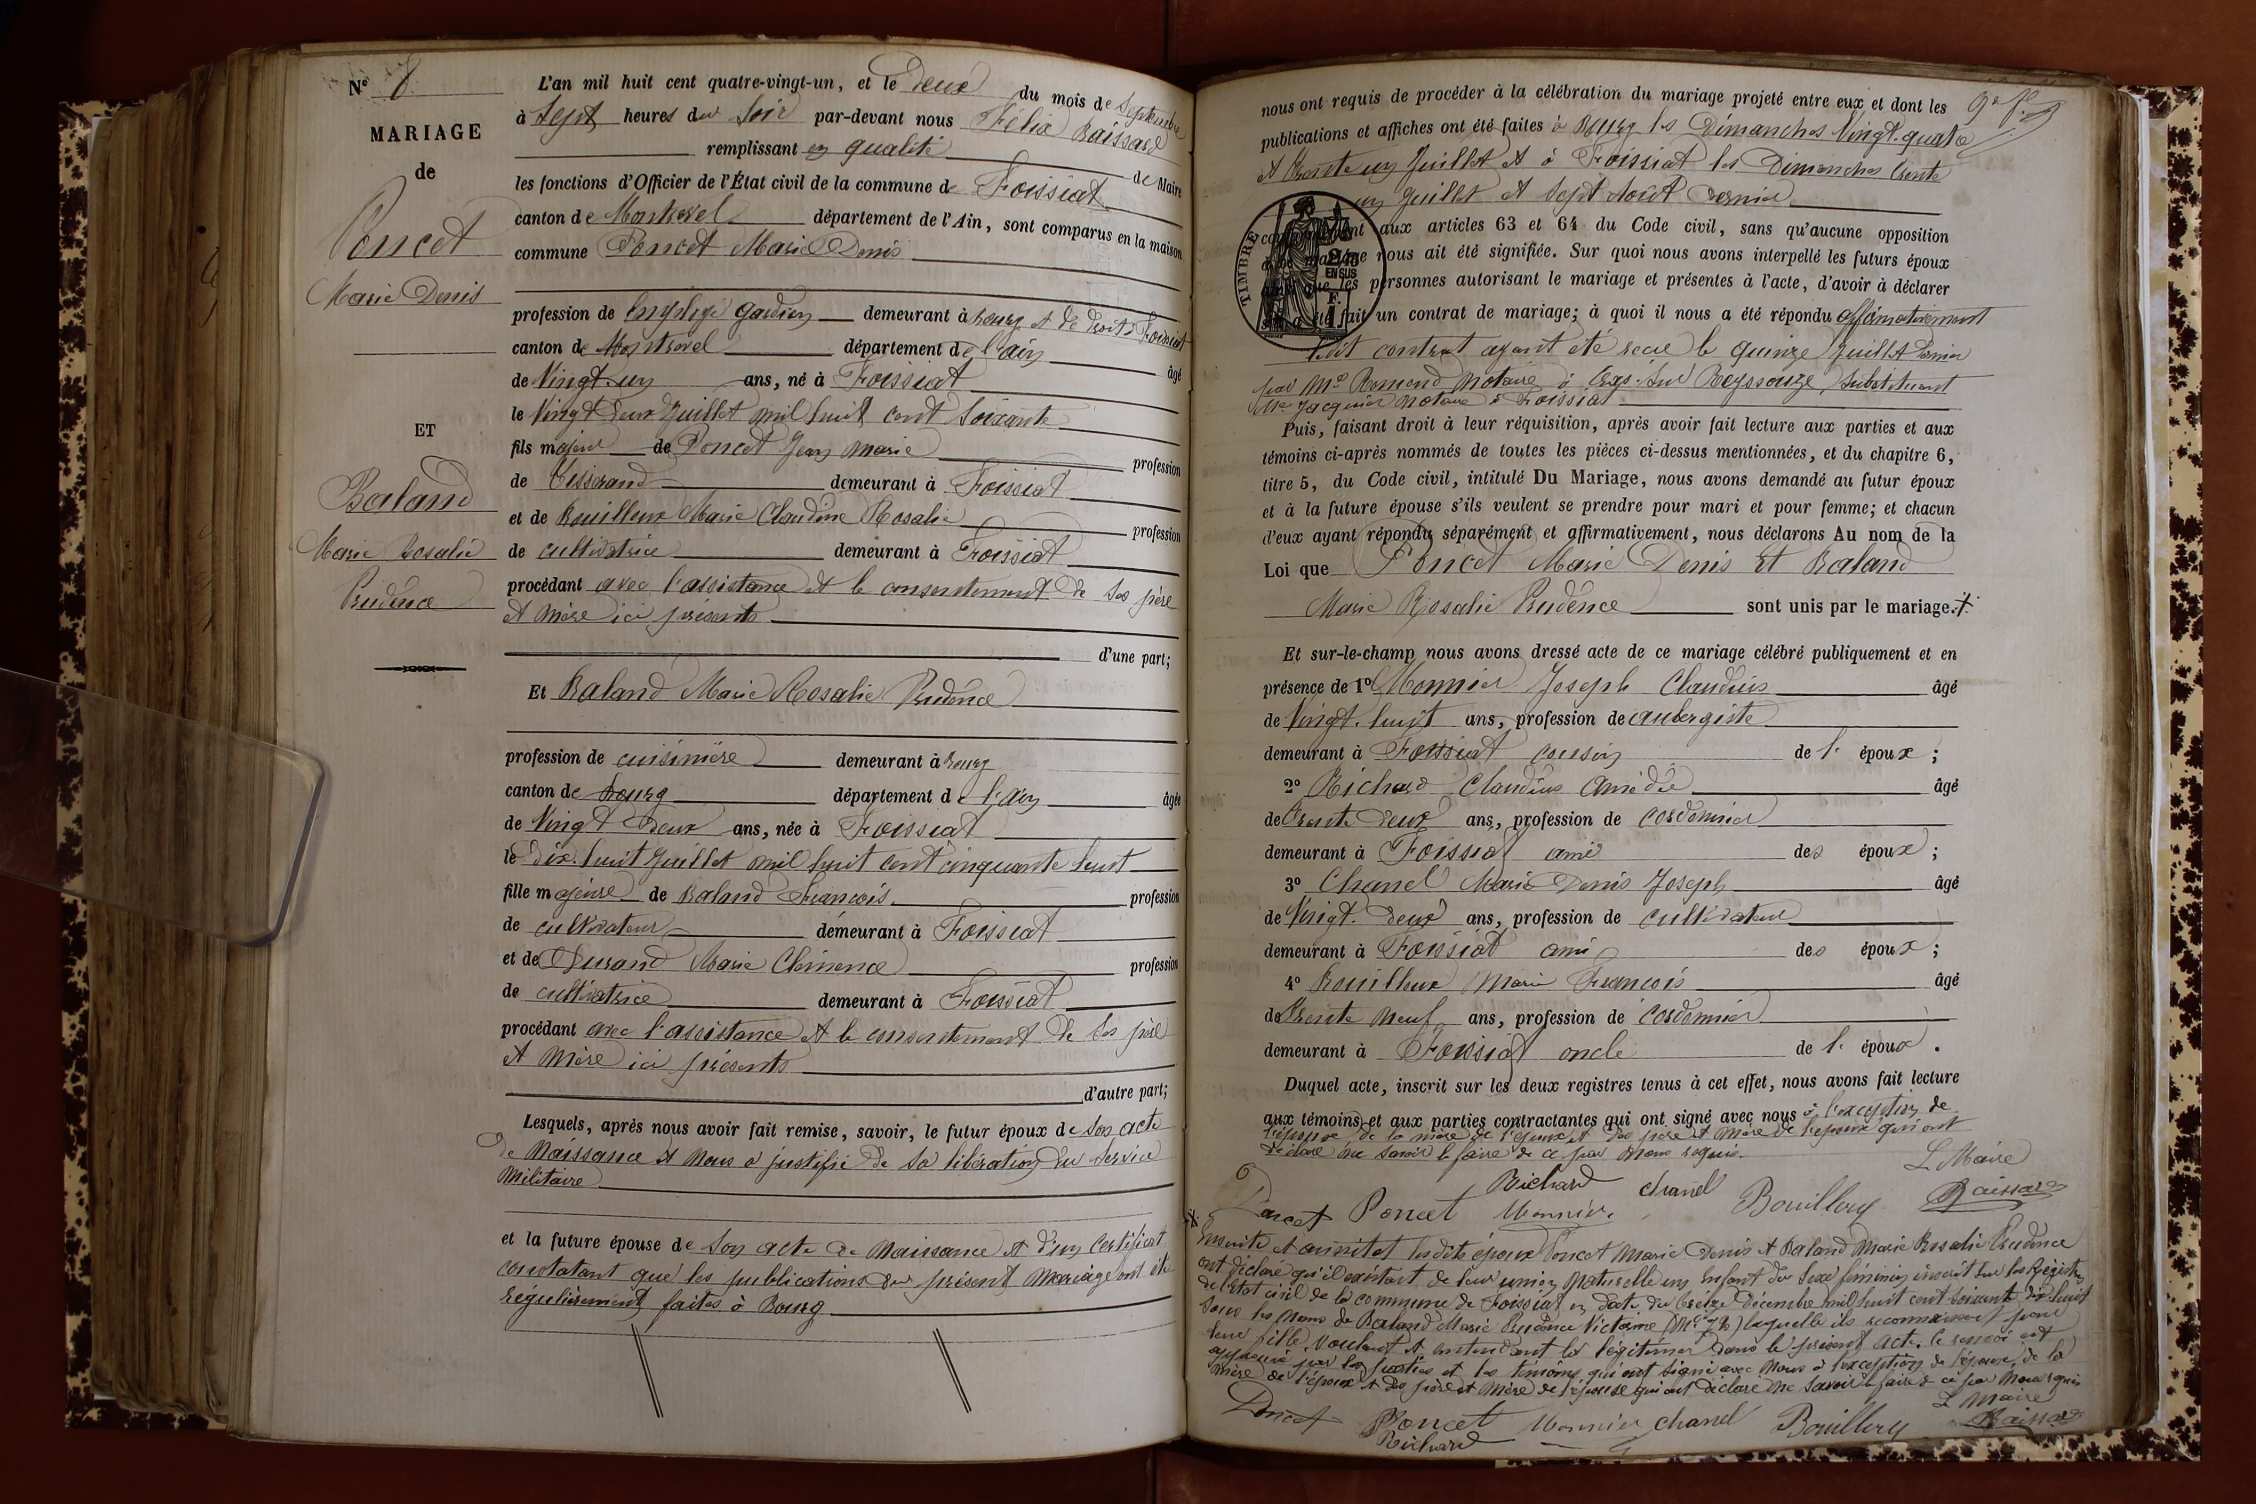 Nº 8
MARIAGE
de
Poncet
Marie Denis
ET
Baland
Marie Rosalie
Prudence
L'an mil huit cent quatre-vingt-un, et le deux du mois de Septembre
à Sept heures du Soir par-devant nous Félix Raissard
remplissant en qualité de Maire
les fonctions d'Officier de l'État civil de la commune de Foissiat
canton de Montrevel département de l'Ain, sont comparus en la maison
commune Poncet Marie Denis
profession de employé gardien demeurant à Bourg et de droit à Foissiat
canton de Montrevel département de l'ain âgé
de Vingt-un ans, né à Foissiat
le Vingt deux Juillet mil huit cent Soixante
fils majeur de Poncet Jean Marie profession
de Tisserand demeurant à Foissiat
et de Bouilloux Marie Claudine Rosalie profession
de cultivatrice demeurant à Foissiat
procédant avec l'assistance et le consentement de ses père
et mère ici présents
d'une part;
Et Baland Marie Rosalie Prudence
profession de cuisinière demeurant à Bourg
canton de Bourg département de l'ain âgée
de Vingt deux ans, née à Foissiat
le dix-huit Juillet mil huit cent cinquante huit
fille majeure de Baland François profession
de cultivateur demeurant à Foissiat
et de Durand Marie Clémence profession
de cultivatrice demeurant à Foissiat
procédant avec l'assistance et le consentement de ses père
et mère ici présents
d'autre part;
Lesquels, après nous avoir fait remise, savoir, le futur époux de Son acte
de Naissance et Nous a justifié de Sa libération du Service
Militaire
et la future épouse de Son acte de Naissance et d'un Certificat
constatant que les publications du présent Mariage ont été
regulièrement faites à Bourg
nous ont requis de procéder à la célébration du mariage projeté entre eux et dont les
publications et affiches ont été faites à Bourg les Dimanches Vingt-quatre
et Trente un Juillet et à Foissiat les Dimanches trente
un Juillet et Sept Aout dernier
TIMBRE
EN SUS
aux articles 63 et 64 du Code civil, sans qu'aucune opposition
nous ait été signifiée. Sur quoi nous avons interpellé les futurs époux
les personnes autorisant le mariage et présentes à l'acte, d'avoir à déclarer
fait un contrat de mariage; à quoi il nous a été répondu affirmativement
ledit contrat ayant été recu le quinze Juillet dernier
par Me Romand Notaire à Sur Reyssouze, Substituant
Me Jacquier Notaire à Foissiat
Puis, faisant droit à leur réquisition, après avoir fait lecture aux parties et aux
témoins ci-après nommés de toutes les pièces ci-dessus mentionnées, et du chapitre 6,
titre 5, du Code civil, intitulé Du Mariage, nous avons demandé au futur époux
et à la future épouse s'ils veulent se prendre pour mari et pour femme; et chacun
d'eux ayant répondu séparément et affirmativement, nous déclarons Au nom de la
Loi que Poncet Marie Denis Et Baland
Marie Rosalie Prudence sont unis par le mariage.
Et sur-le-champ nous avons dressé acte de ce mariage célébré publiquement et en
présence de 1º Monnier Joseph Claudius âgé
de Vingt-huit ans, profession de aubergiste
demeurant à Foissiat cousin de l' époux;
2º Richard Claudius Amédée âgé
de Trente deux ans, profession de cordonnier
demeurant à Foissiat ami des époux;
3º Chanel Marie Denis Joseph âgé
de Vingt-deux ans, profession de cultivateur
demeurant à Foissiat ami des époux;
4º Bouilloux Marie François âgé
de Trente Neuf ans, profession de cordonnier
demeurant à Foissiat oncle de l' époux.
Duquel acte, inscrit sur les deux registres tenus à cet effet, nous avons fait lecture
aux témoins et aux parties contractantes qui ont signé avec nous à l'exception de
l'épouse, de la mère de l'époux et des père et mère de l'épouse qui ont
déclaré ne savoir le faire de ce par Nous requis.
Le Maire
Poncet Poncet Richard Monnier chanel Bouilloux Raissard
Ensuite et aussitot lesdits époux Poncet Marie Denis et Baland Marie Rosalie Prudence
ont déclaré qu'il existait de leur union Naturelle un Enfant du Sexe féminin inscrit Sur les Registres
de l'état civil de la commune de Foissiat en date du treize Décembre mil huit cent soixante dix huit
Sous les Noms de Baland Marie Prudence Victorine laquelle ils reconnaissent pour
leur fille, voulant et entendant la légitimer dans le présent acte. Ce renvoi est
approuvé par les parties et les témoins qui ont Signé avec Nous à l'exception de l'épouse, de la
mère de l'époux et des père et mère de l'épouse qui ont déclaré ne Savoir le faire de ce par Nous requis
Le Maire
Poncet Poncet Monnier chanel Bouilloux Raissard
Richard